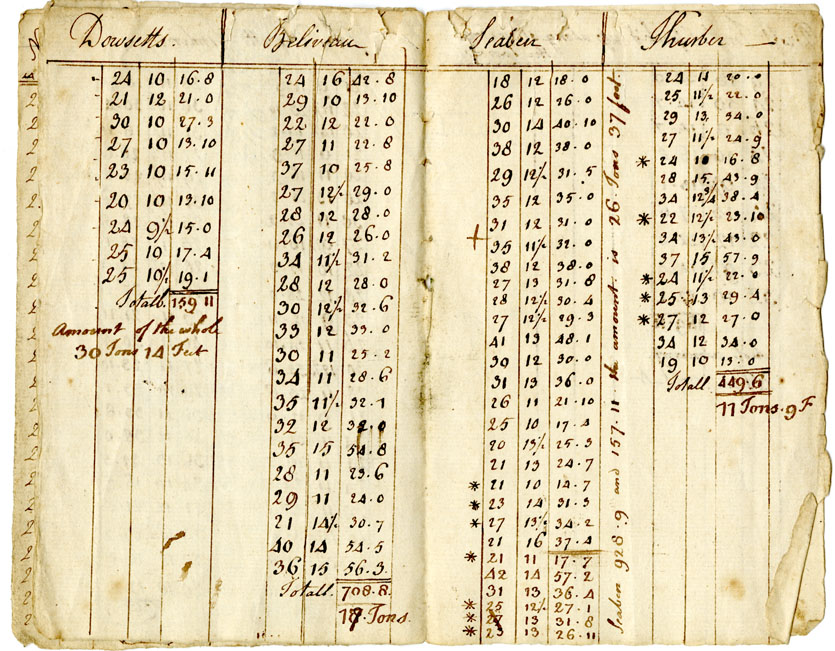 Dowsetts.
24 10 16.8
21 12 21.0
30 10 27.3
27 10 13.10
23 10 15.11
20 10 13.10
24 9½ 15.0
25 10 17.4
25 10½ 19.1
Totall. 159 11
Amount of the whole
30 Tons 14 Feet
Beliveau
24 16 42.8
29 10 13.10
22 12 22.0
27 11 22.8
37 10 25.8
27 12½ 29.0
28 12 28.0
26 12 26.0
34 11½ 31.2
28 12 28.0
30 12½ 32.6
33 12 33.0
30 11 25.2
34 11 28.6
35 11½ 32.1
32 12 32.0
35 15 54.8
28 11 23.6
29 11 24.0
21 14½ 30.7
40 14 54.5
36 15 56.3
Totall. 708.8
17 Tons.
Seabeir
18 12 18.0
26 12 26.0
30 14 40.10
38 12 38.0
29 12½ 31.5
35 12 35.0
31 12 31.0
+
35 11½ 32.0
38 12 38.0
27 13 31.8
28 12½ 30.4
27 12½ 29.3
41 13 48.1
30 12 30.0
31 13 36.0
26 11 21.10
25 10 17.4
20 13½ 25.3
21 13 24.7
* 21 10 14.7
* 23 14 31.3
* 27 13½ 34.2
21 16 37.4
* 21 11 17.7
42 14 57.2
31 13 36.4
* 25 12½ 27.1
* 27 13 31.8
* 23 13 26.11
Seabeir 928.9 and 157.11 the amount is 26 Tons 37 feet
Thurber
24 11 20.0
25 11½ 22.0
29 13 34.0
27 11½ 24.9
* 24 10 16.8
28 15 43.9
34 12¾ 38.4
* 22 12½ 23.10
34 13½ 43.0
37 15 57.9
* 24 11½ 22.0
* 25 13 29.4
* 27 12 27.0
34 12 34.0
19 10 13.0
Totall 449.6
11 Tons. 9 F